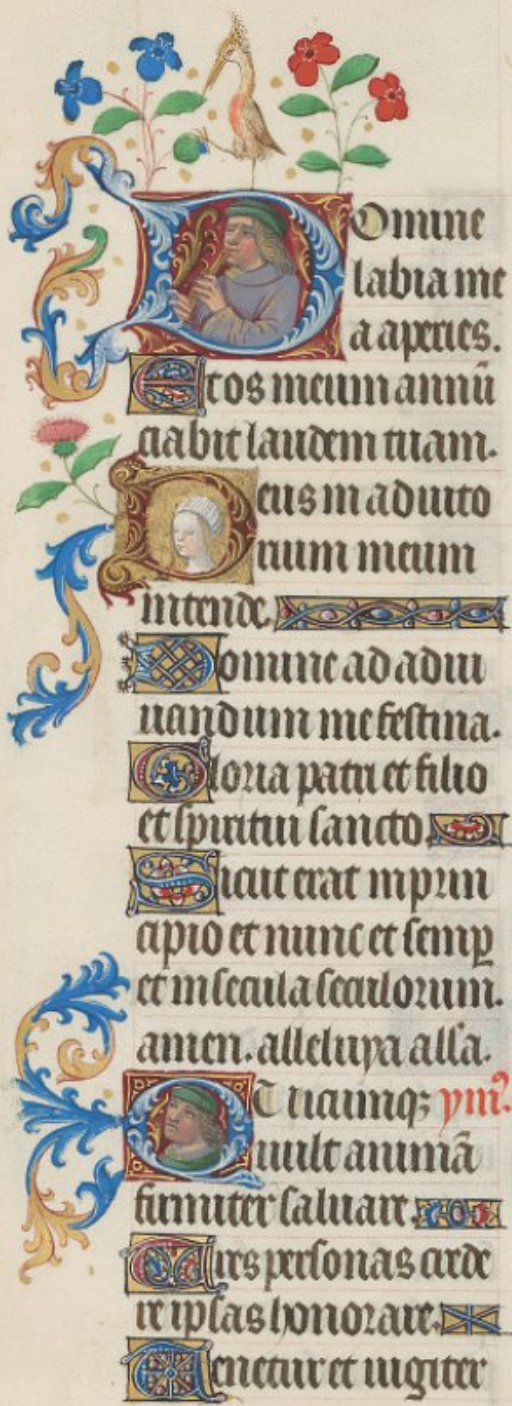 Domine
labia me
a aperies.
Et os meum annū
ciabit laudem tuam.
Deus in adiuto
rium meum
intende.
Domine ad adiu
uandum me festina.
Gloria patri et filio
et spiritui sancto.
Sicut erat in prin
cipio et nunc et semꝑ
et in secula seculorum.
amen. alleluya all'a.
Quicumqꝫ ym̄.
uult animā
firmiter saluare.
Tres personas crede
re ipsas honorare.
Tenetur et iugiter